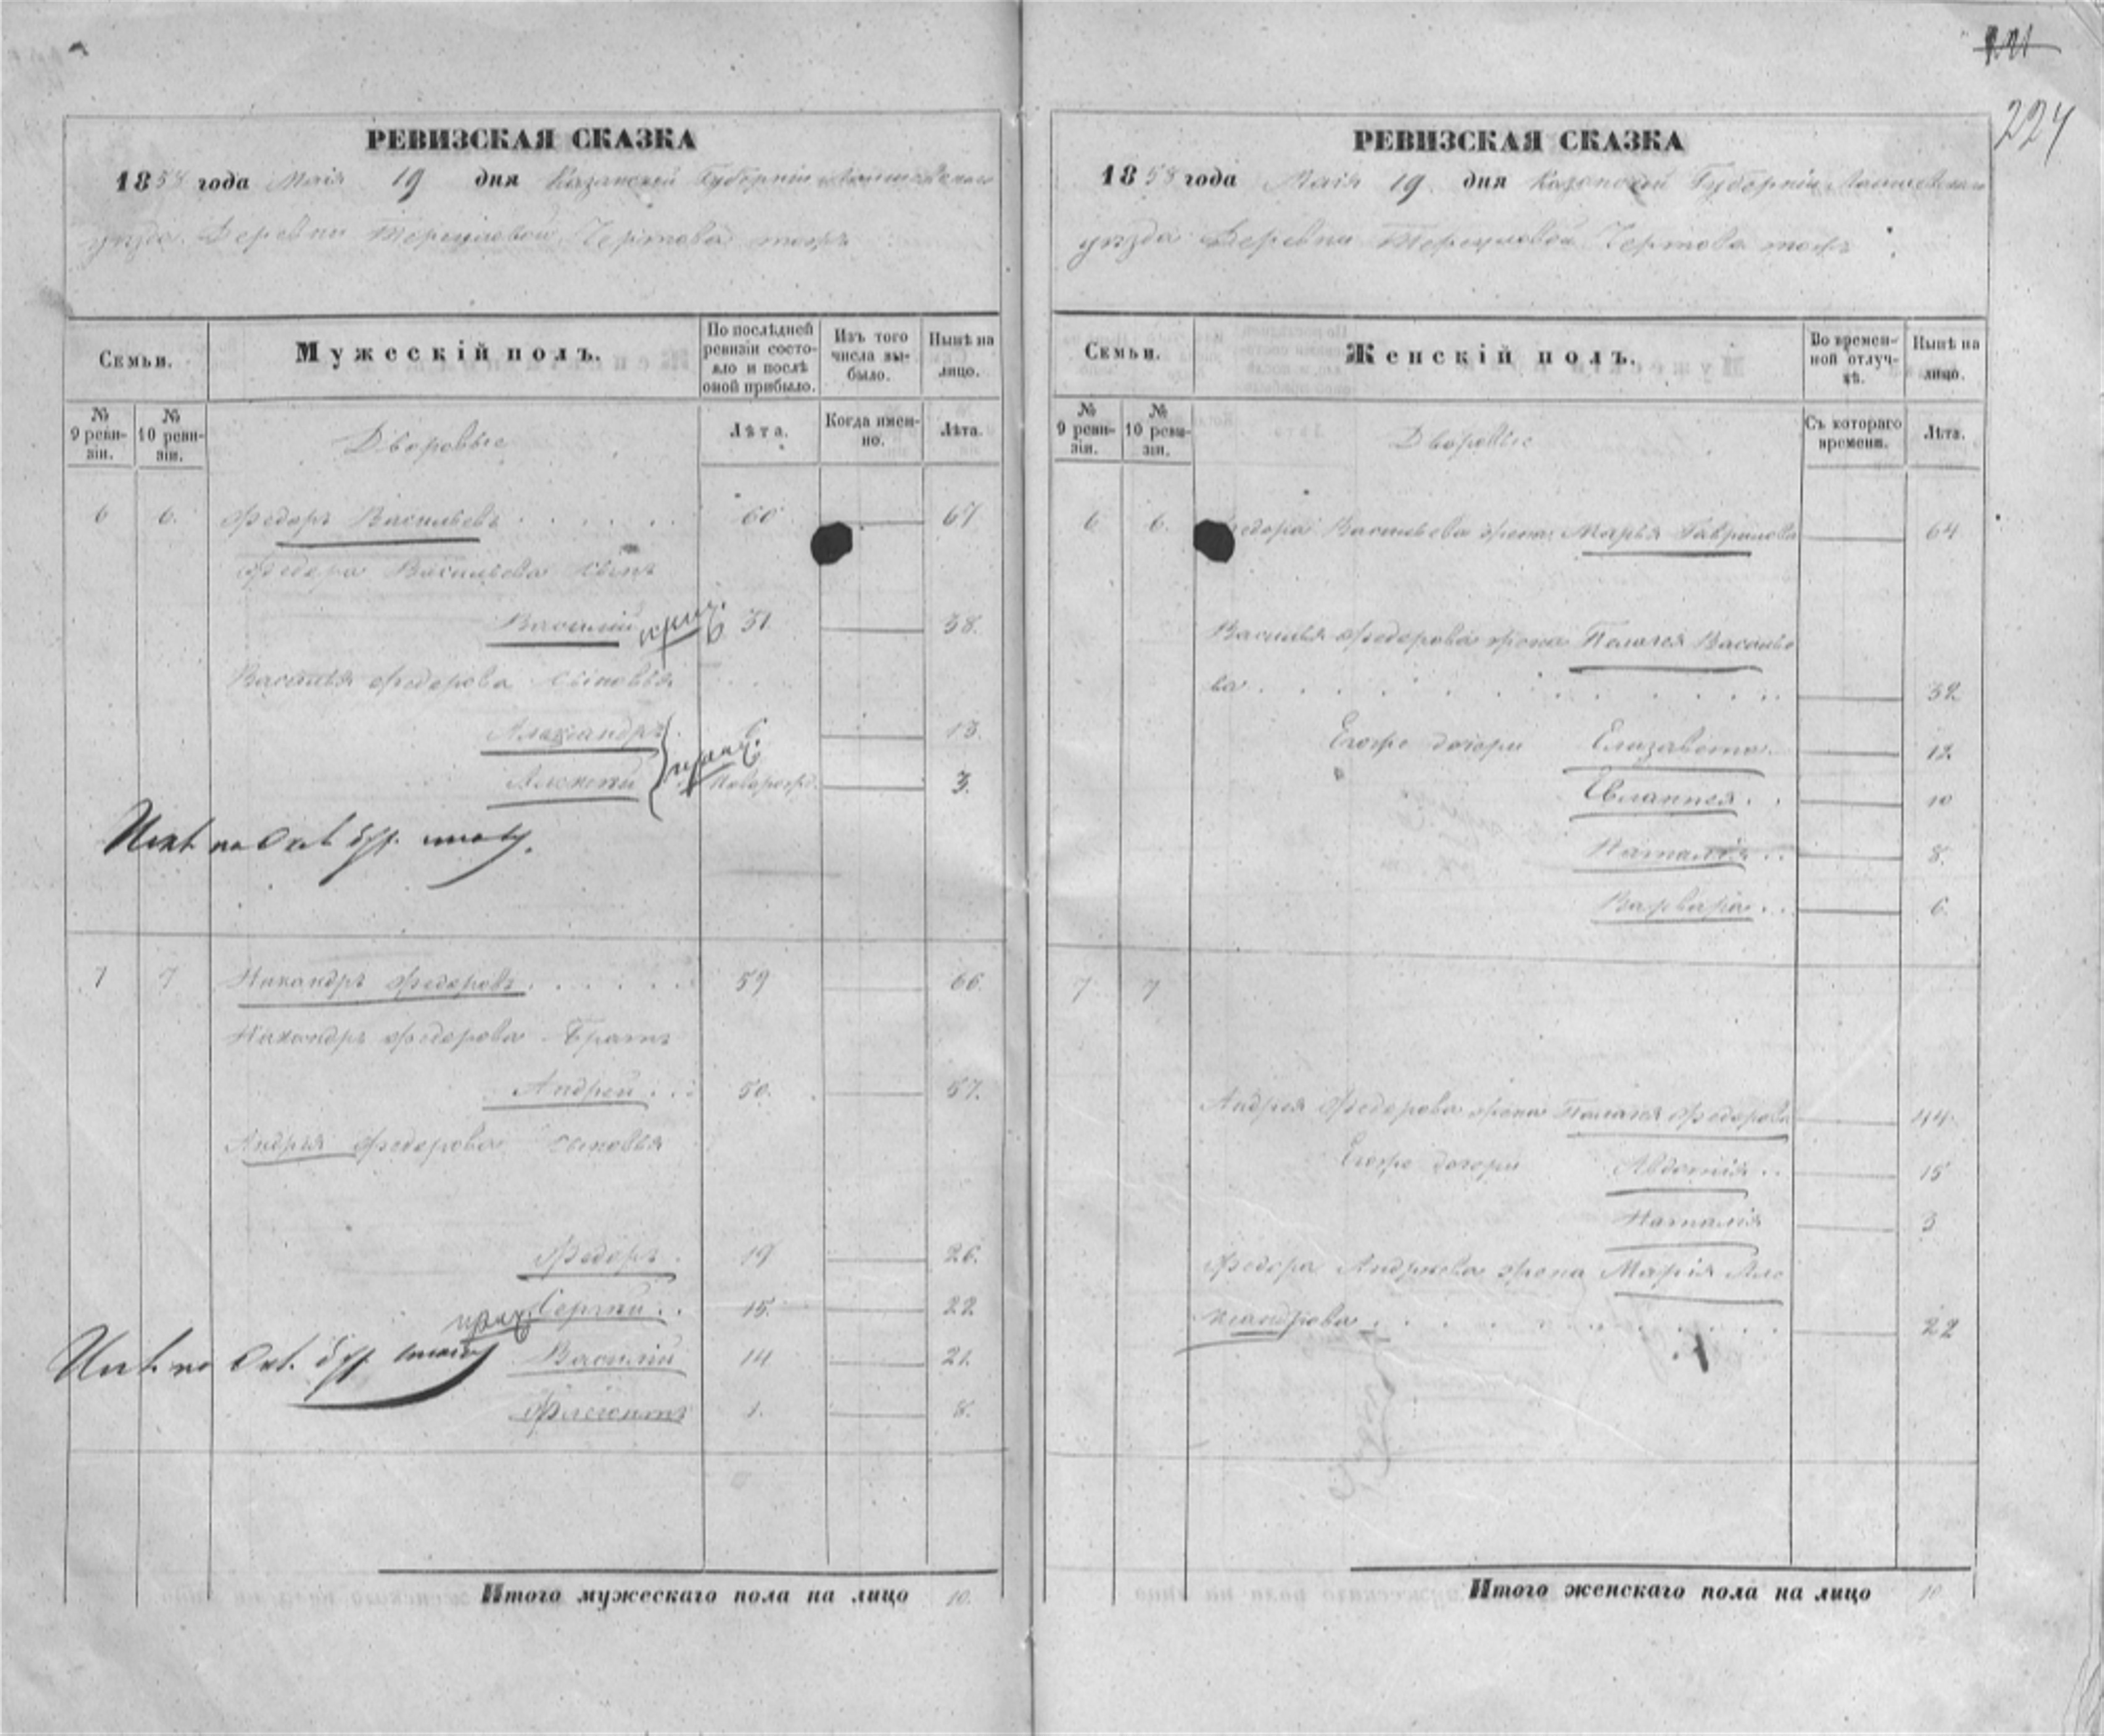 224
РЕВИЗСКАЯ СКАЗКА
1858 года Мая 19 дня Казанской Губернiи Лаишевского
уезда Деревни Чертова тожъ
Семьи.
Мужескій полъ.
По послѣдней ревизіи состояло и послѣ оной прибыло.
Изъ того числа выбыло.
Нынѣ на лицо.
№ 9 ревизіи.
№ 10 ревизіи.
Дворовые
Лѣта.
Когда именно.
Лѣта.
6 6. Федоръ Васильевъ . . . . . 60 67
Федора Васильева сынъ
Василий 31 38.
Василья Федорова сыновья
Александръ 6 13.
Алексей новорожд. 3.
7 7 Никандръ Федоровъ . . . . . . 59 66.
Никандра Федорова братъ
Андрей . . : 50. 57.
Андрея Федорова сыновья
Федоръ . 19 26.
Сергей . . 15. 22
Василий 14 21.
1. 8.
Итого мужескаго пола на лицо 10.
РЕВИЗСКАЯ СКАЗКА
1858 года Мая 19. дня Казанской Губернiи Лаишевского
уезда Деревни Чертова тожъ
Семьи.
Женскій полъ.
Во временной отлучкѣ.
Нынѣ на лицо.
№ 9 ревизіи.
№ 10 ревизіи.
Дворовые
Съ котораго времени.
Лѣта.
6 6. Федора Васильева жена Марья Гаврилова 64
Василья Федорова жена Пелагея Василье
ва . . . . . . . . . 32
Егоже дочери Елизавета. 12.
Евланпея . . 10
Наталiя . . 8.
Варвара . . 6.
7 7
Андрея Федорова жена Пелагея Федорова 44.
Егоже дочери Авдотiя . . 15
Наталiя 3
Федора Андреева жена Марiя Але
ксандрова . . . . . . . . 22
Итого женскаго пола на лицо 10